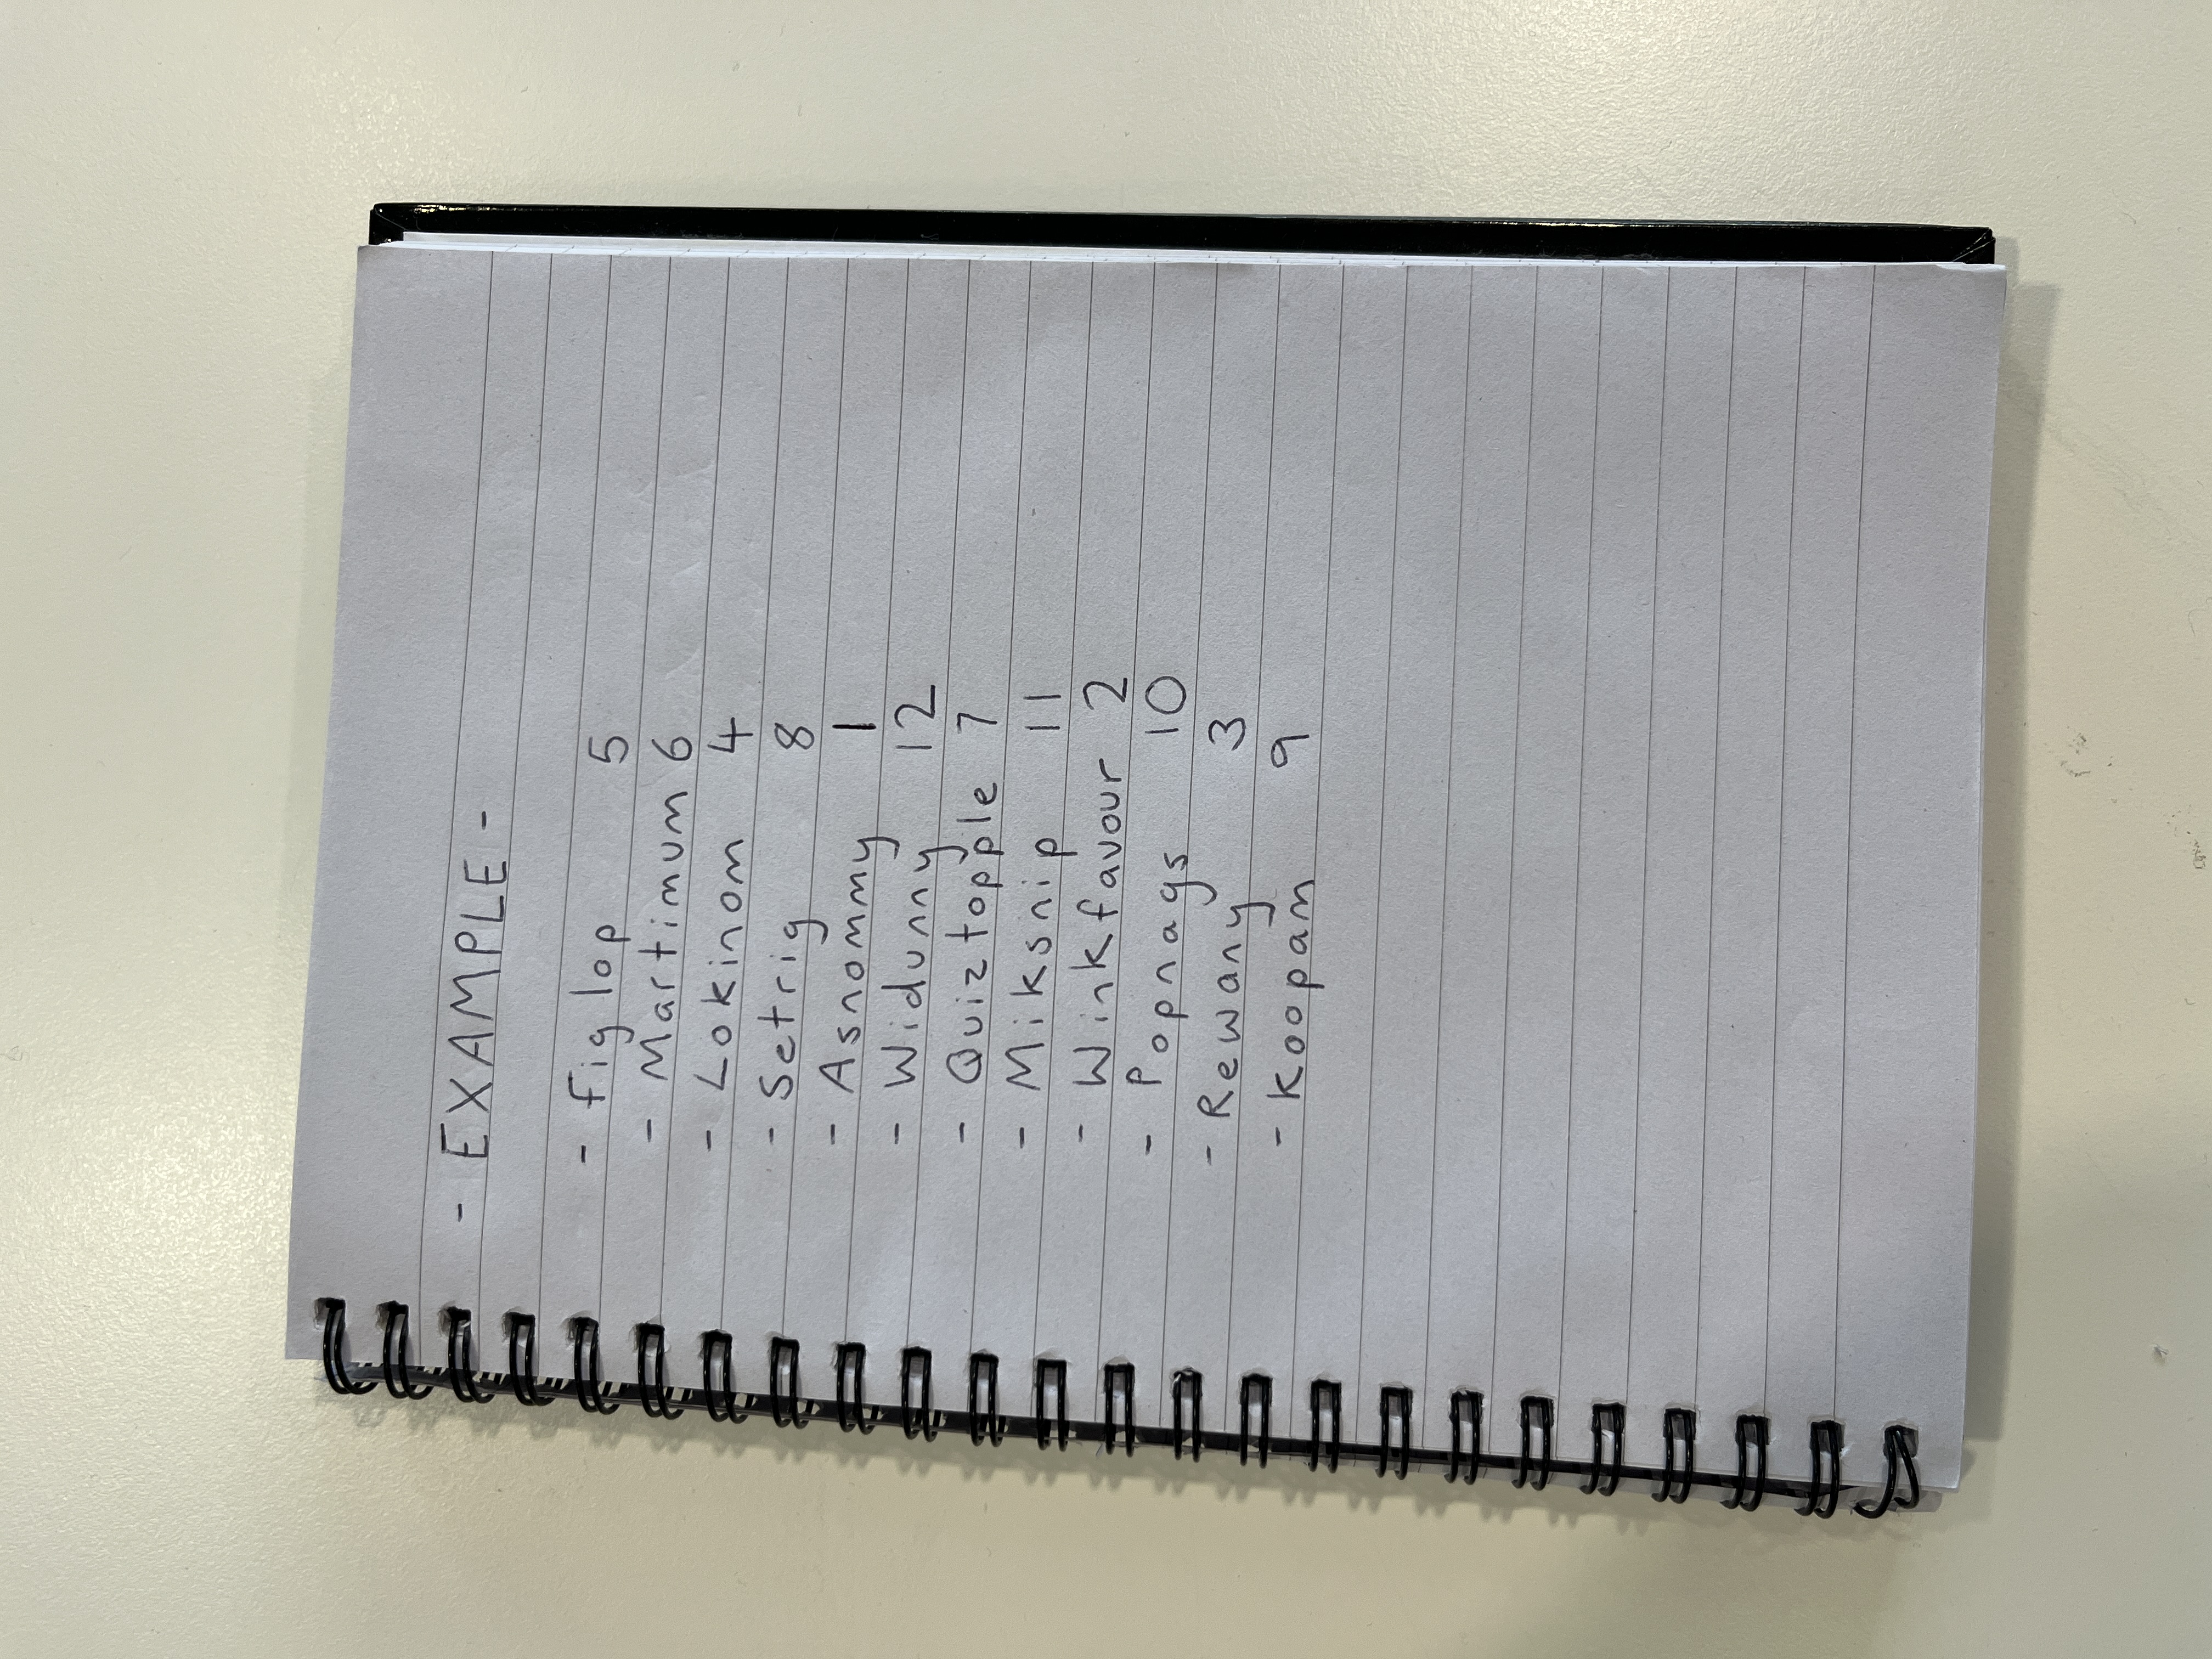 - EXAMPLE -
- Figlop 5
- Martinum 6
- Lokinom 4
- Setrig 8
- Asnommy 1
- Widunny 12
- Quiztopple 7
- Miksnip 11
- Winkfavour 2
- Popnags 10
- Rewany 3
- Koopam 9